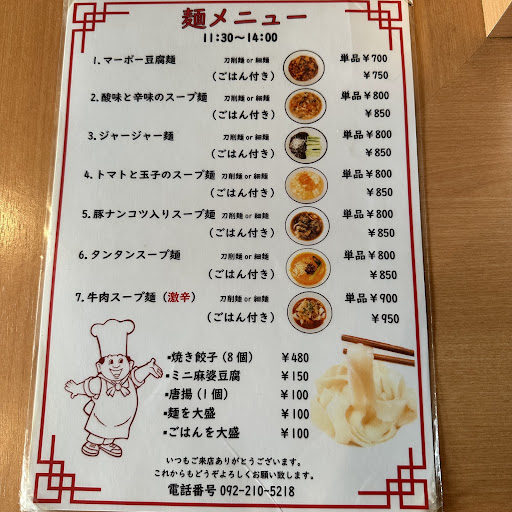 麺メニュー
11:30〜14:00
1.マーボー豆腐麺 刀削麺 or 細麺 単品￥700
(ごはん付き) ￥750
2.酸味と辛味のスープ麺 刀削麺 or 細麺 単品￥800
(ごはん付き) ￥850
3.ジャージャー麺 刀削麺 or 細麺 単品￥800
(ごはん付き) ￥850
4.トマトと玉子のスープ麺 刀削麺 or 細麺 単品￥800
(ごはん付き) ￥850
5.豚ナンコツ入りスープ麺 刀削麺 or 細麺 単品￥800
(ごはん付き) ￥850
6.タンタンスープ麺 刀削麺 or 細麺 単品￥800
(ごはん付き) ￥850
7.牛肉スープ麺（激辛） 刀削麺 or 細麺 単品￥900
(ごはん付き) ￥950
▪焼き餃子(8個) ￥480
▪ミニ麻婆豆腐 ￥150
▪唐揚(1個) ￥100
▪麺を大盛 ￥100
▪ごはんを大盛 ￥100
いつもご来店ありがとうございます。
これからもどうぞよろしくお願い致します。
電話番号 092-210-5218